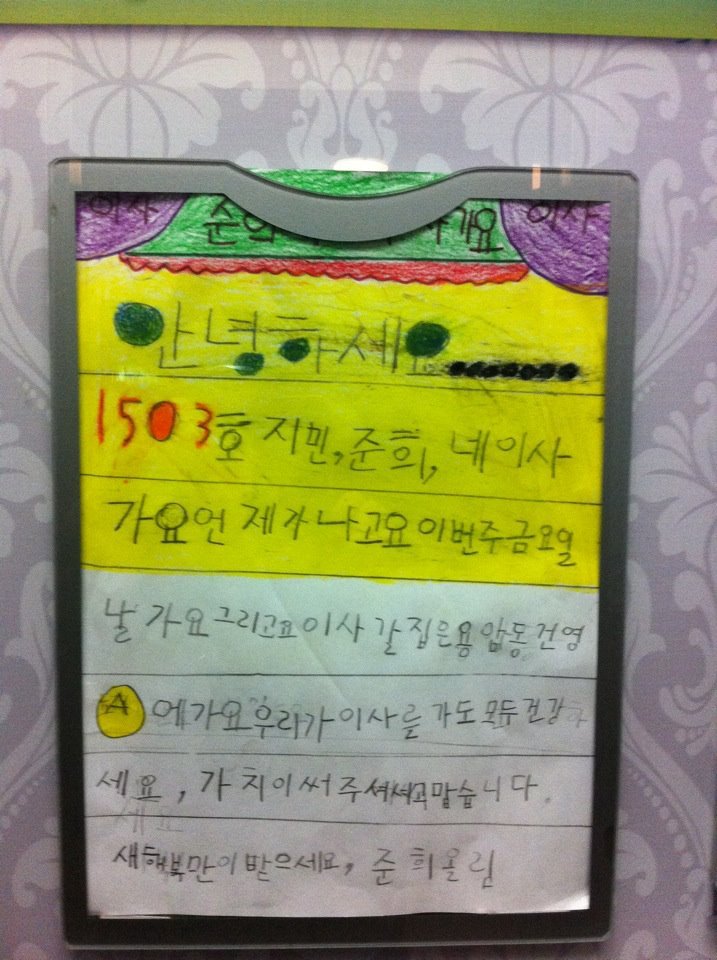 이사 준희 가요 이사
안녕하세요.......
1503호 지민,준희, 네이사
가요언제가나고요이번주금요일
날가요그리고요이사갈집은용암동건영
A에가요우리가이사를가도모두건강하
세요,가치이써주셔서고맙습니다.
새해복만이받으세요, 준희올림